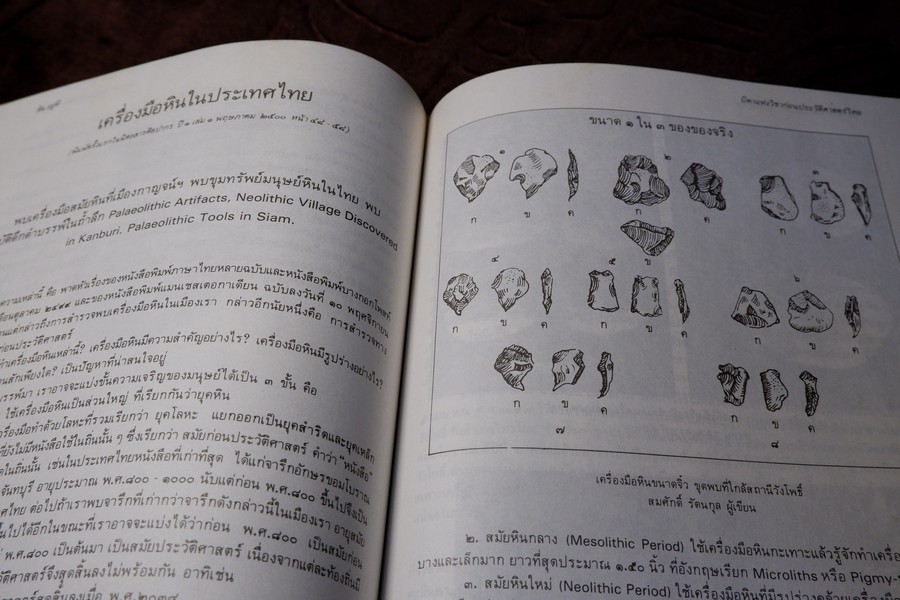 เครื่องมือหินในประเทศไทย
(พิมพ์ครั้งแรกในนิตยสารศิลปากร ปีที่ ๑ เล่ม ๑ พฤษภาคม ๒๕๐๐ หน้า ๔๔ - ๕๔)
พบเครื่องมือสมัยหินที่เมืองกาญจน์ฯ พบขุมทรัพย์มนุษย์หินในไทย พบ
บัติดึกดำบรรพ์ในถ้ำลึก Palaeolithic Artifacts, Neolithic Village Discovered
in Kanburi. Palaeolithic Tools in Siam.
ความเหล่านี้ คือ พาดหัวเรื่องของหนังสือพิมพ์ภาษาไทยหลายฉบับและหนังสือพิมพ์บางกอกโพสต์
ดือนตุลาคม ๒๔๙๙ และของหนังสือพิมพ์แมนเชสเตอกาเดียน ฉบับลงวันที่ ๑๐ พฤศจิกายน
นแต่กล่าวถึงการสำรวจพบเครื่องมือหินในเมืองเรา กล่าวอีกนัยหนึ่งคือ การสำรวจทาง
ก่อนประวัติศาสตร์
ครื่องมือหินเหล่านี้? เครื่องมือหินมีความสำคัญอย่างไร? เครื่องมือหินมีรูปร่างอย่างไร?
นสักเพียงใด? เป็นปัญหาที่น่าสนใจอยู่
บรรพ์มา เราอาจจะแบ่งชั้นความเจริญของมนุษย์ได้เป็น ๓ ขั้น คือ
ใช้เครื่องมือหินเป็นส่วนใหญ่ ที่เรียกกันว่ายุคหิน
ครื่องมือทำด้วยโลหะที่รวมเรียกว่า ยุคโลหะ แยกออกเป็นยุคสำริดและยุคเหล็ก
ที่ยังไม่มีหนังสือใช้ในถิ่นนั้น ๆ ซึ่งเรียกว่า สมัยก่อนประวัติศาสตร์ คำว่า "หนังสือ"
ในถิ่นนั้น เช่นในประเทศไทยหนังสือที่เก่าที่สุด ได้แก่จารึกอักษรขอมโบราณ
จันทบุรี อายุประมาณ พ.ศ.๘๐๐ - ๑๐๐๐ นับแต่ก่อน พ.ศ.๘๐๐ ขึ้นไปจึงเป็น
ทศไทย ต่อไปถ้าเราพบจารึกที่เก่ากว่าจารึกดังกล่าวนี้ในเมืองเรา อายุสมัย
ึ้นไปได้อีกในขณะที่เราอาจจะแบ่งได้ว่าก่อน พ.ศ.๘๐๐ เป็นสมัยก่อน
พ.ศ.๘๐๐ เป็นต้นมา เป็นสมัยประวัติศาสตร์ เนื่องจากแต่ละท้องถิ่นมี
วัติศาสตร์จึงสุดสิ้นลงไม่พร้อมกัน อาทิเช่น
สุดสิ้นลงเมื่อ พ.ศ.๒๐๓๔
มีดาแห่งวิชาก่อนประวัติศาสตร์ไทย
ขนาด ๑ ใน ๓ ของของจริง
๑ ๒ ๓
ก ข ค ก ค ก ข ค
ข
๔ ๕ ๖
ก ข ค ก ข ค ก ข ค
ก ข ค ก ข ค
๗ ๘
เครื่องมือหินขนาดจิ๋ว ขุดพบที่ใกล้สถานีวังโพธิ์
สมศักดิ์ รัตนกุล ผู้เขียน
๒. สมัยหินกลาง (Mesolithic Period) ใช้เครื่องมือหินกะเทาะแล้วรู้จักทำเครื่อ
บางและเล็กมาก ยาวที่สุดประมาณ ๑.๕๐ นิ้ว ที่อังกฤษเรียก Microliths หรือ Pigmy-
๓. สมัยหินใหม่ (Neolithic Period) ใช้เครื่องมือหินที่มีรูปร่างคล้ายเครื่องมือ